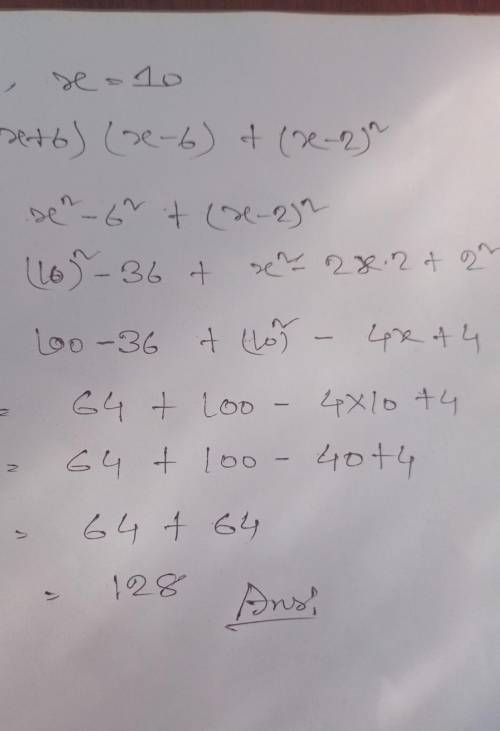 , x = 10
x+6) (x-6) + (x-2)²
x² - 6² + (x-2)²
(10)² - 36 + x² - 2x.2 + 2²
100 - 36 + (10)² - 4x + 4
= 64 + 100 - 4×10 + 4
= 64 + 100 - 40 + 4
= 64 + 64
= 128 Ans: